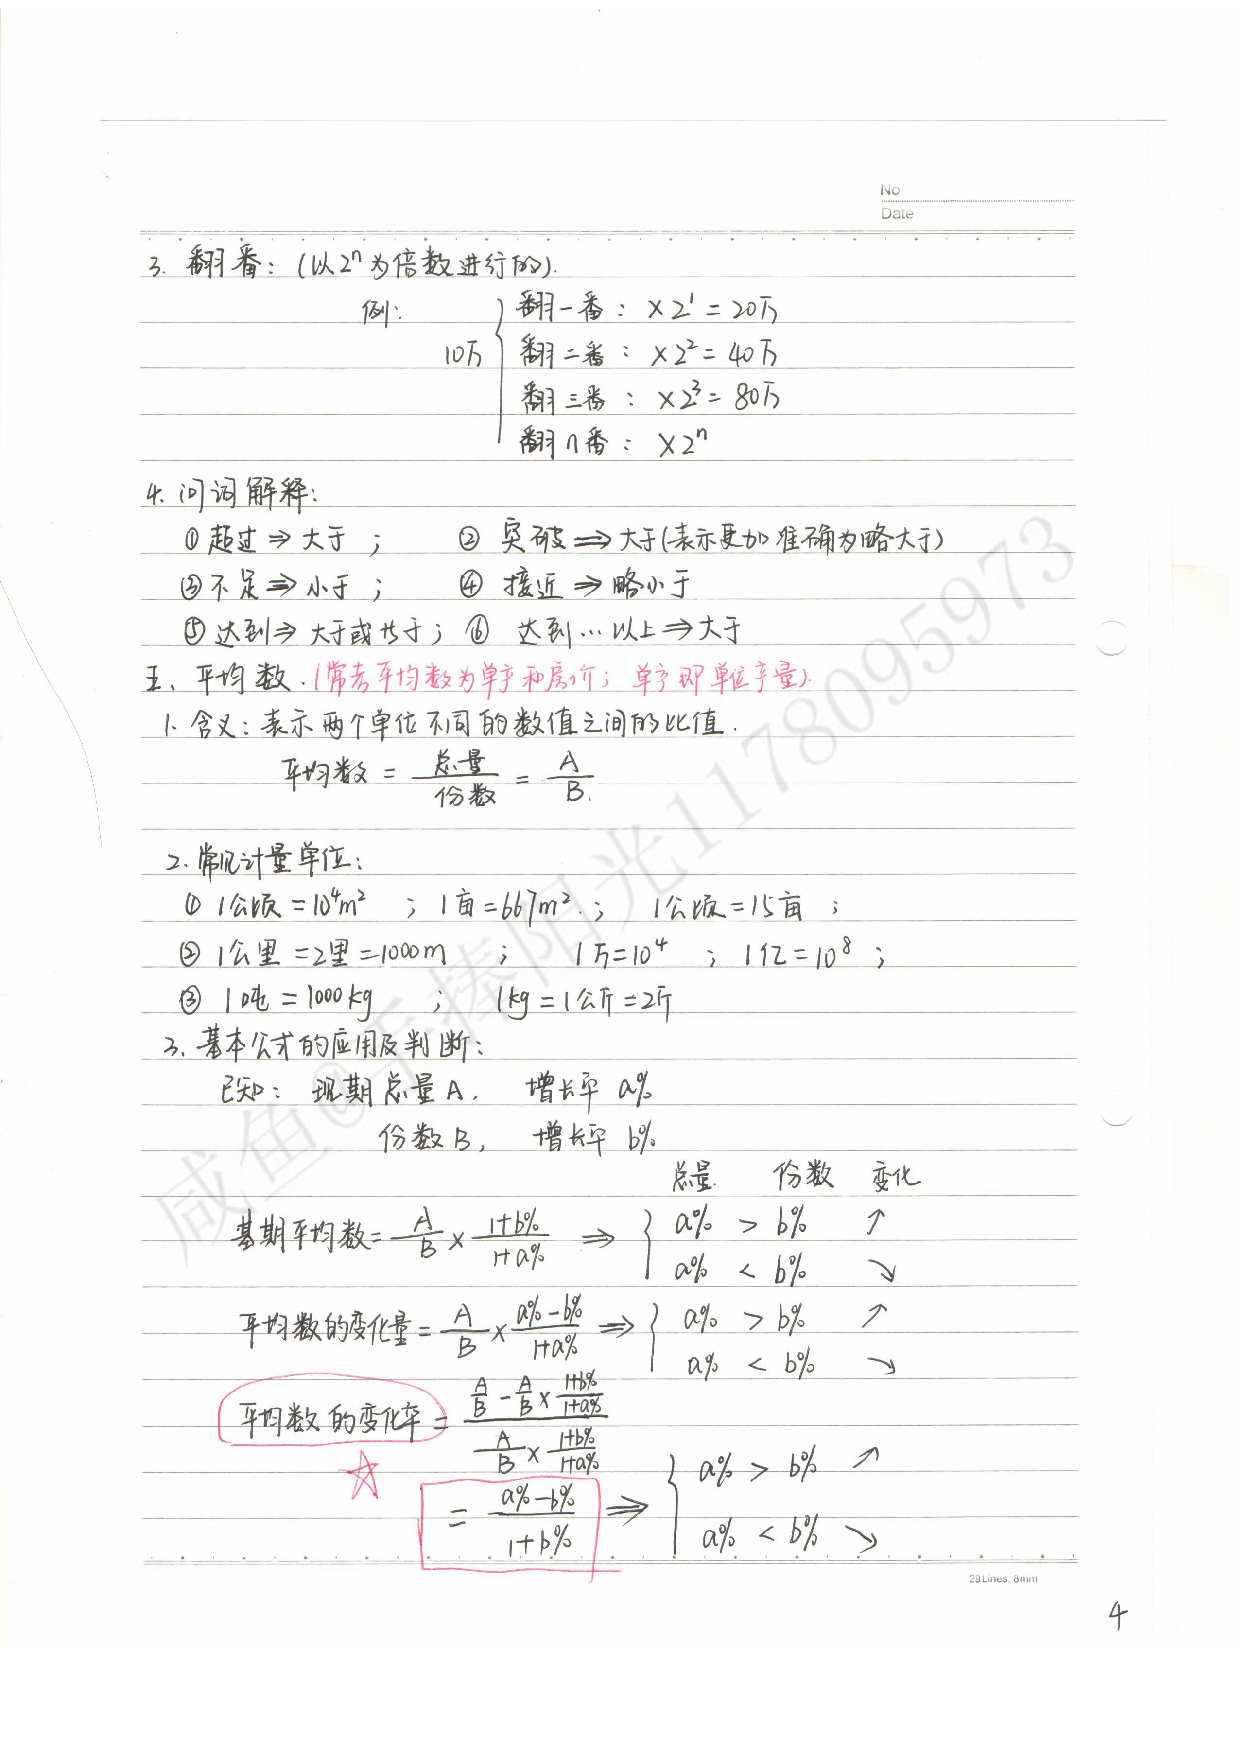 No
Date
3. 翻番：(以2ⁿ为倍数进行的).
例：
翻一番：×2¹=20万
10万
翻二番：×2²=40万
翻三番：×2³=80万
翻n番：×2ⁿ
4. 问词解释：
①超过⇒大于； ②突破⇒大于(表示更加准确为略大于)
③不足⇒小于； ④接近⇒略小于
⑤达到⇒大于或等于；⑥达到…以上⇒大于
五、平均数.(常考平均数为单产和房价；单产即单位产量).
1. 含义：表示两个单位不同的数值之间的比值.
平均数 = 总量/份数 = A/B.
2. 常见计量单位：
①1公顷=10⁴m² ；1亩=667m².； 1公顷=15亩；
②1公里=2里=1000m ； 1万=10⁴ ；1亿=10⁸；
③1吨=1000kg ； 1kg=1公斤=2斤
3. 基本公式的应用及判断：
已知：现期总量A, 增长率 a%
份数B, 增长率 b%
总量 份数 变化
基期平均数= A/B × (1+b%)/(1+a%) ⇒ { a% > b% ↗
a% < b% ↘
平均数的变化量= A/B × (a%-b%)/(1+a%) ⇒ { a% > b% ↗
a% < b% ↘
平均数的变化率 = (A/B - A/B × (1+b%)/(1+a%)) / (A/B × (1+b%)/(1+a%))
= (a%-b%)/(1+b%) ⇒ { a% > b% ↗
a% < b% ↘
29Lines, 8mm
4
咸鱼@手捧阳光1178095973